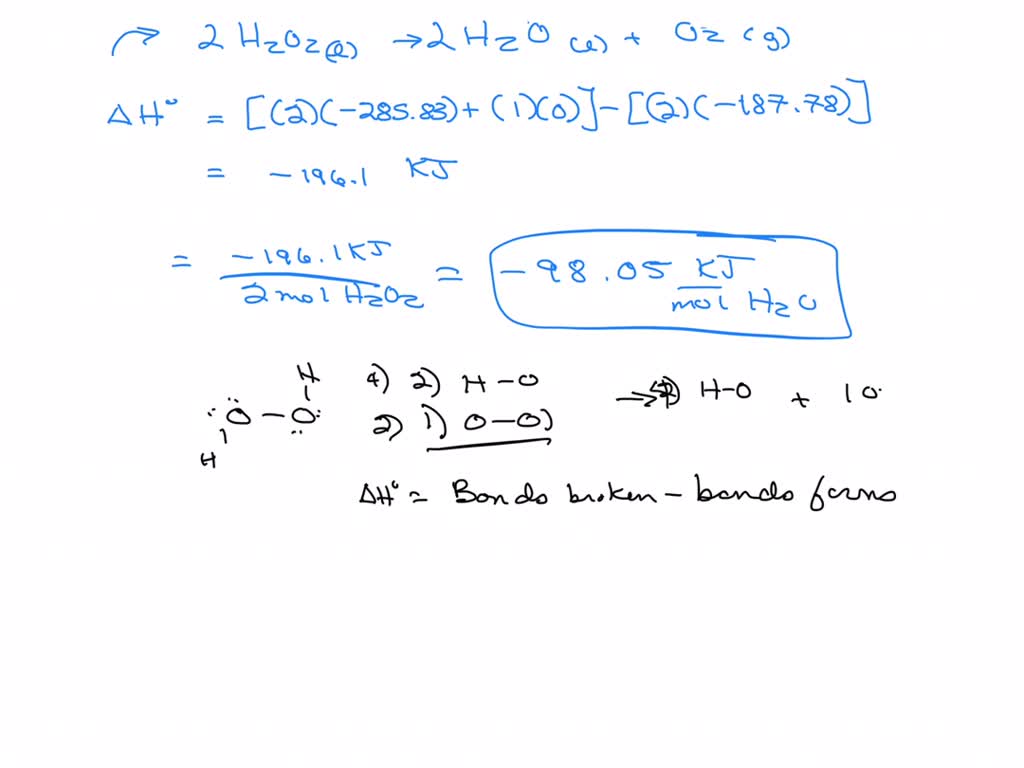 2 H2O2(l) → 2 H2O (l) + O2 (g)
ΔH° = [(2)(-285.83) + (1)(0)] - [(2)(-187.78)]
= -196.1 KJ
= -196.1 KJ / 2 mol H2O2 = -98.05 KJ / mol H2O
H
4) 2) H-O → H-O + 1 O
:Ö-O:
2) 1) O-O)
H
ΔH° = Bonds broken - bonds forms